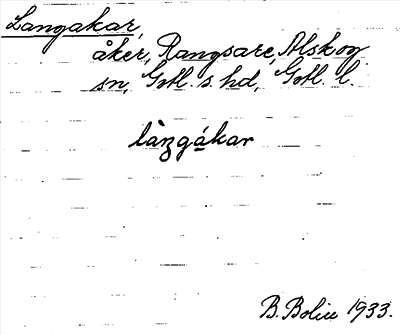 Langåkar,
åker, Rangsare, Alskog
sn, Gotl. s. hd, Gotl. l.
làŋgákar
B. Bolin 1933.